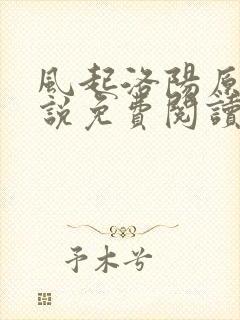 風起洛陽原
說免費閱讀
予木兮